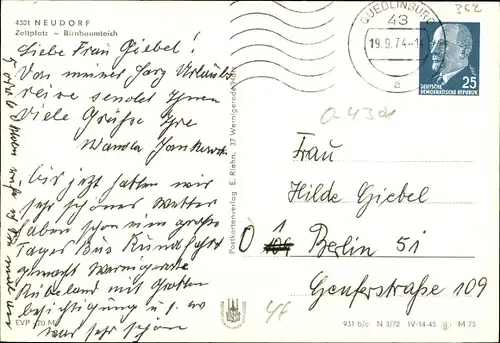 4301 NEUDORF
Zeltplatz – Birnbaumteich
Liebe Frau Giebel!
Von meiner Harz Urlaubs
reise sendet Ihnen
Viele Grüße Ihre
Wanda
bis jetzt hatten wir
sehr schönes Wetter
haben schon eine große
Tages Bus Rundfahrt
gemacht Wernigerode
Rübeland mit Grotten
besichtigung u. s. w
war sehr schön
EVP -,20 M
Postkartenverlag E. Riehn, 37 Wernigerode/Harz
QUEDLINBURG
43
19.9.74-14
a
362
25
DEUTSCHE
DEMOKRATISCHE REPUBLIK
a 4301
Frau
Hilde Giebel
1 Berlin 51
Genferstraße 109
931 b/c N 3/72 IV-14-45 M 75